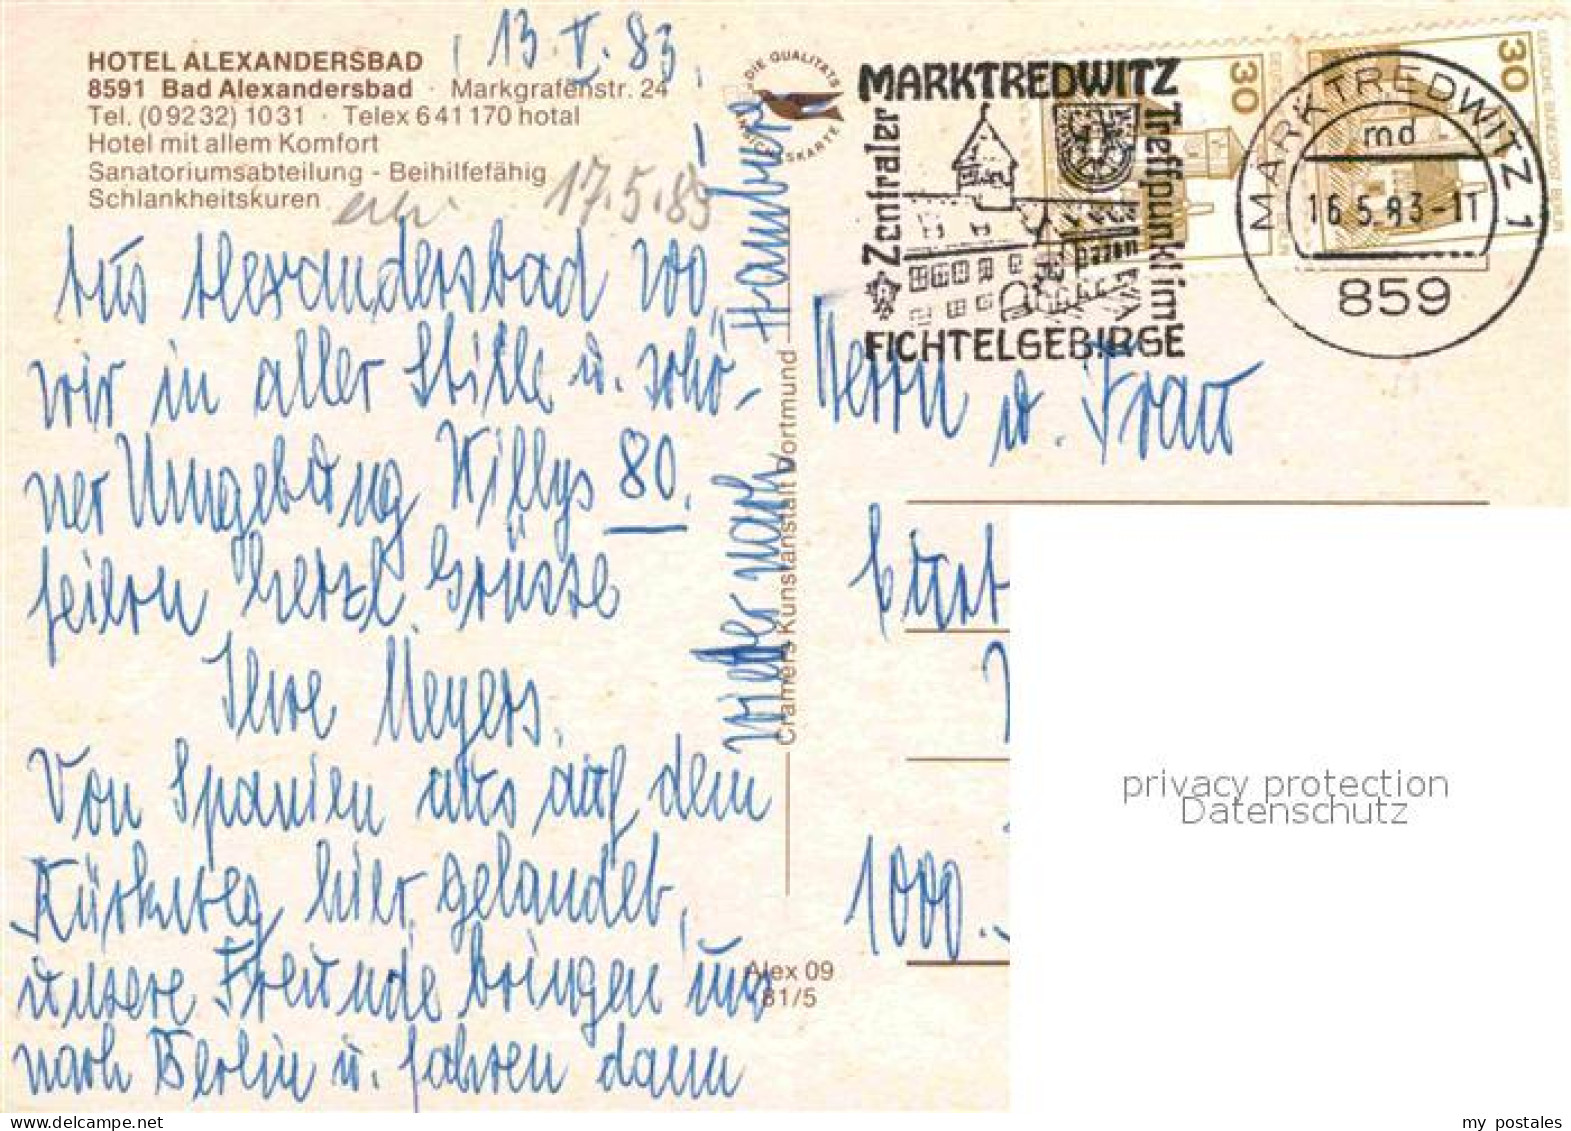 13.V.83.
HOTEL ALEXANDERSBAD
8591 Bad Alexandersbad · Markgrafenstr. 24
Tel. (09232) 1031 · Telex 641170 hotal
Hotel mit allem Komfort
Sanatoriumsabteilung - Beihilfefähig
Schlankheitskuren
17.5.83
Aus Alexandersbad wo
wir in aller Stille u. schö-
ner Umgebung Willys 80.
feiern herzl. Grüsse
Ihre Meyers.
Von Spanien aus auf dem
Rückweg hier gelandet,
unsere Freunde bringen uns
nach Berlin u. fahren dann
wieder nach Hamburg
DIE QUALITÄTS
ANSICHTSKARTE
Cramers Kunstanstalt Dortmund
Alex 09
81/5
MARKTREDWITZ
Zentraler
Treffpunkt im
FICHTELGEBIRGE
30
DEUTSCHE BUNDESPOST BERLIN
30
DEUTSCHE BUNDESPOST BERLIN
MARKTREDWITZ 1
md
16.5.83-11
859
Herrn u. Frau
Curt
1000
privacy protection
Datenschutz
my postales